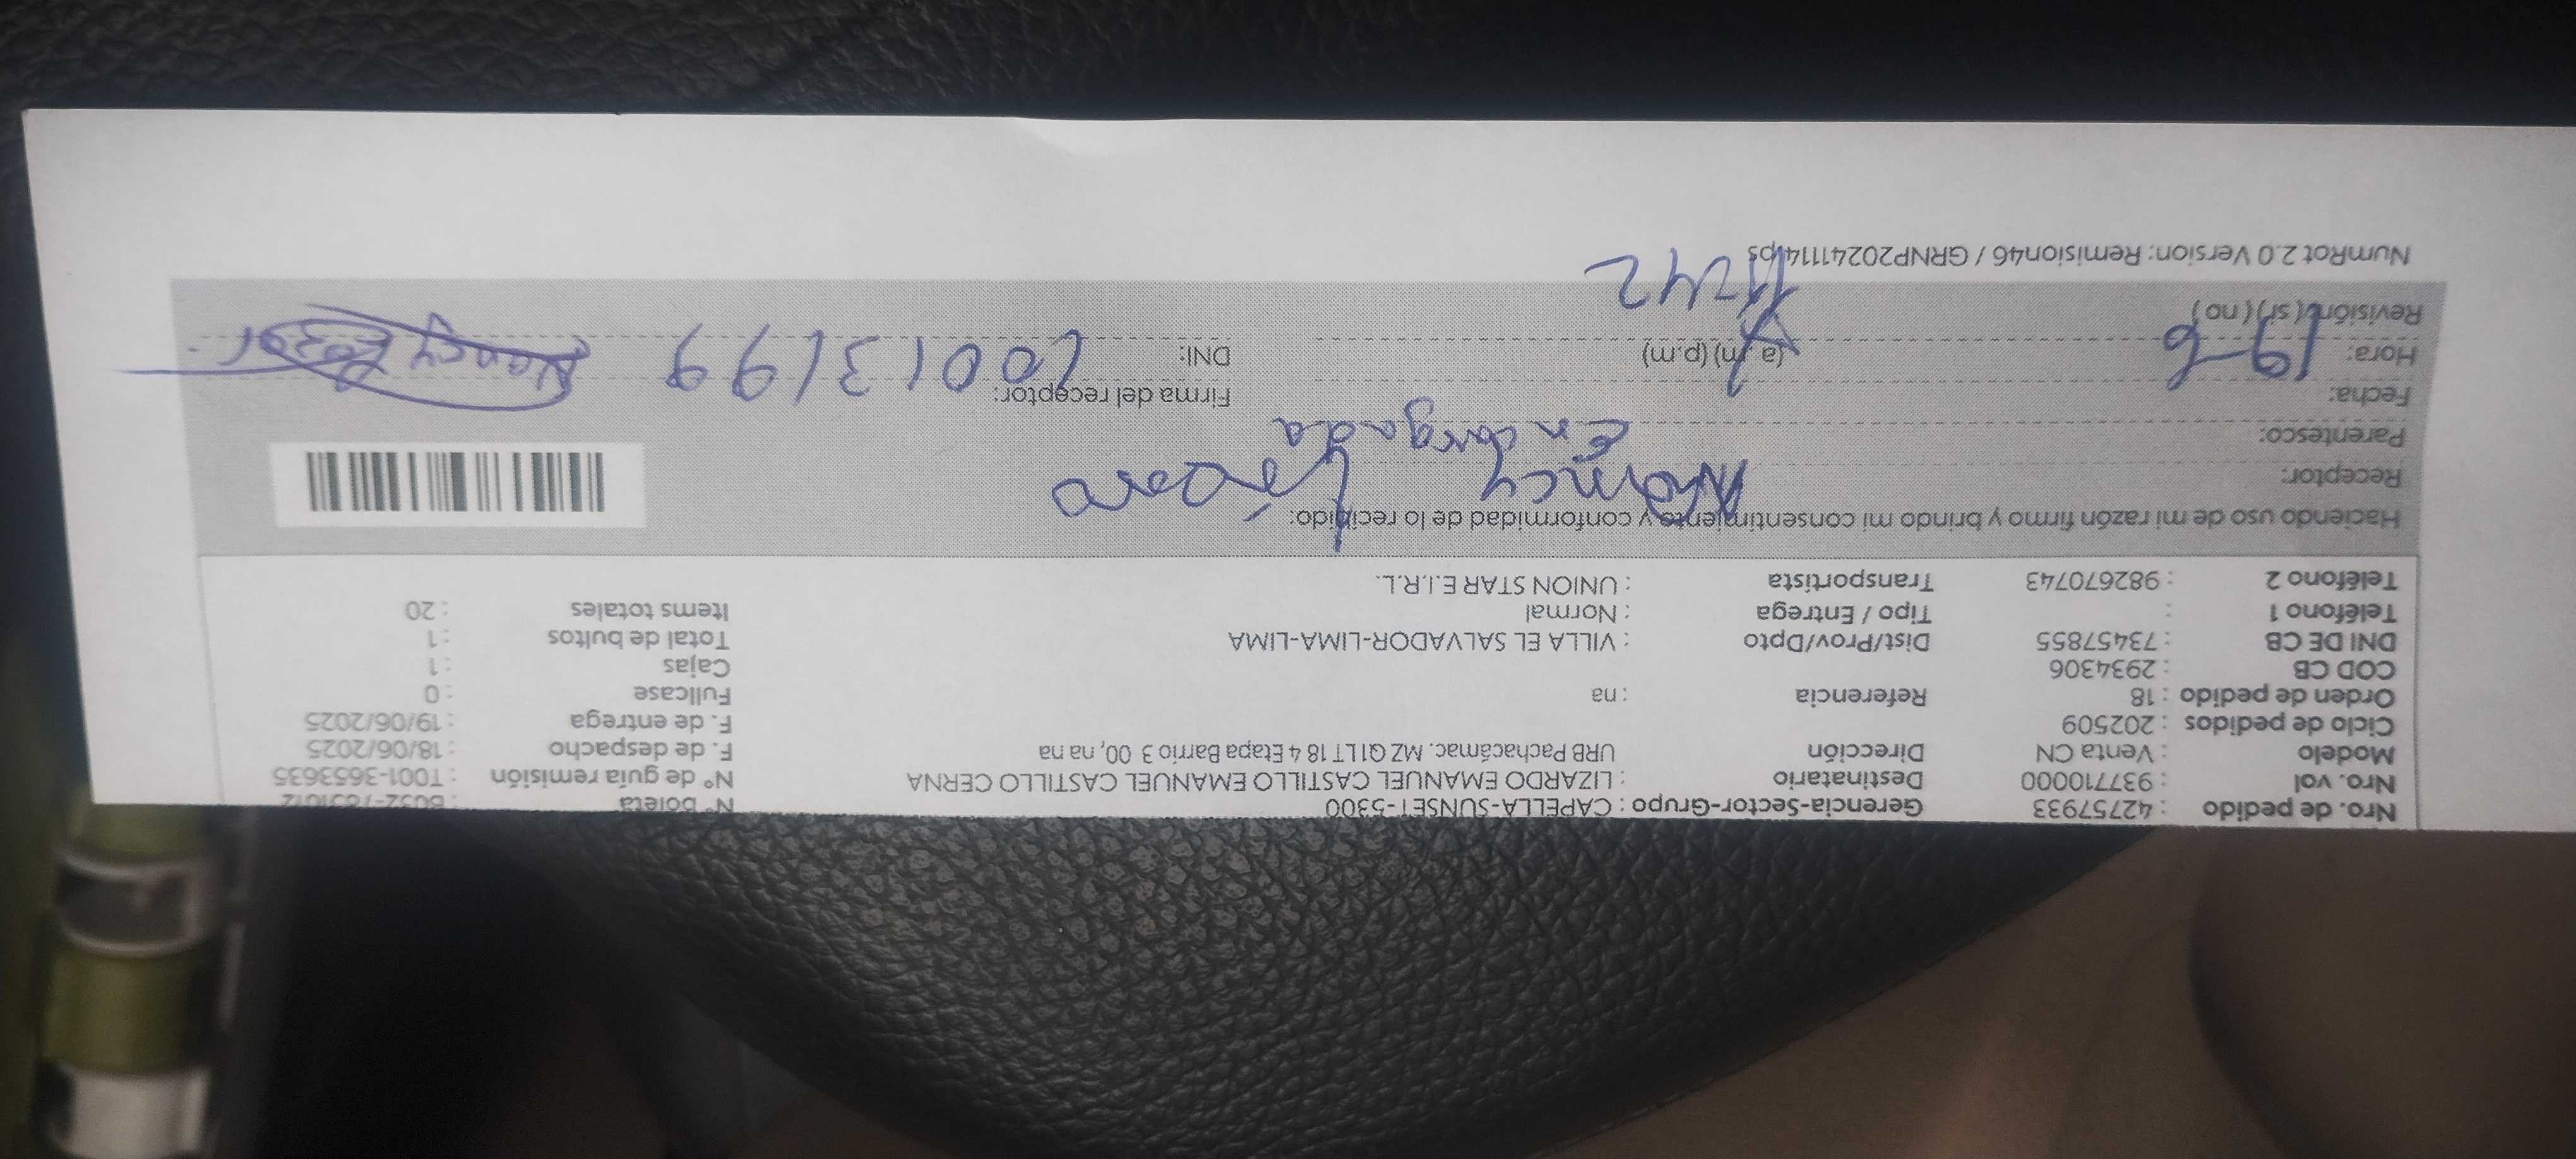 Nro. de pedido : 42757933 Gerencia-Sector-Grupo : CAPELLA-SUNSET-5300 N° boleta
Nro. vol : 937710000 Destinatario : LIZARDO EMANUEL CASTILLO EMANUEL CASTILLO CERNA N° de guía remisión : T001-3653635
Modelo : Venta CN Dirección URB Pachacámac. MZ Q1 LT 18 4 Etapa Barrio 3 00, na na F. de despacho : 18/06/2025
Ciclo de pedidos : 202509 F. de entrega : 19/06/2025
Orden de pedido : 18 Referencia : na Fullcase : 0
COD CB : 2934306 Cajas : 1
DNI DE CB : 73457855 Dist/Prov/Dpto : VILLA EL SALVADOR-LIMA-LIMA Total de bultos : 1
Teléfono 1 : Tipo / Entrega : Normal Items totales : 20
Teléfono 2 : 982670743 Transportista : UNION STAR E.I.R.L.
Haciendo uso de mi razón firmo y brindo mi consentimiento y conformidad de lo recibido:
Receptor: Nancy
Parentesco: Encargada
Fecha: 19-6 Firma del receptor:
Hora: (a.m) (p.m) DNI: 10013199 Nancy
Revisión: (si) (no) 11:42
NumRot 2.0 Version: Remision46 / GRNP20241114.ps